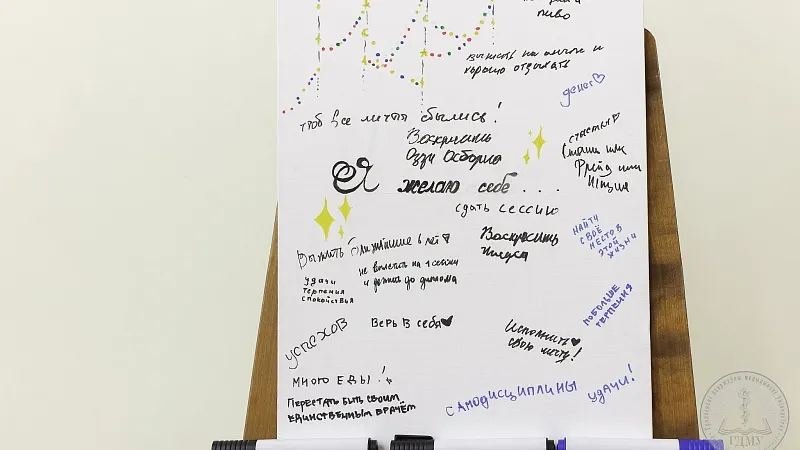 пиво
и
хорошо отдыхать
денег
чтоб все мечты сбылись!
Воскричать
Оззи Осборна
счастья
Фрейд или
Ницше
Я желаю себе...
сдать сессию
Воскресить
Иисуса
НАЙТИ
СВОЁ
МЕСТО В
ЭТОЙ
ЖИЗНИ
Выжить ближайшие 6 лет
не вылететь на 1 сессии
и дожить до диплома
удачи
терпения
спокойствия
ПОБОЛЬШЕ
ТЕРПЕНИЯ
успехов
Верь в себя
Исполнить
свою мечту!
МНОГО ЕДЫ!
ПЕРЕСТАТЬ БЫТЬ СВОИМ
ЕДИНСТВЕННЫМ ВРАЧЁМ
САМОДИСЦИПЛИНЫ
УДАЧИ!
ГДМУ